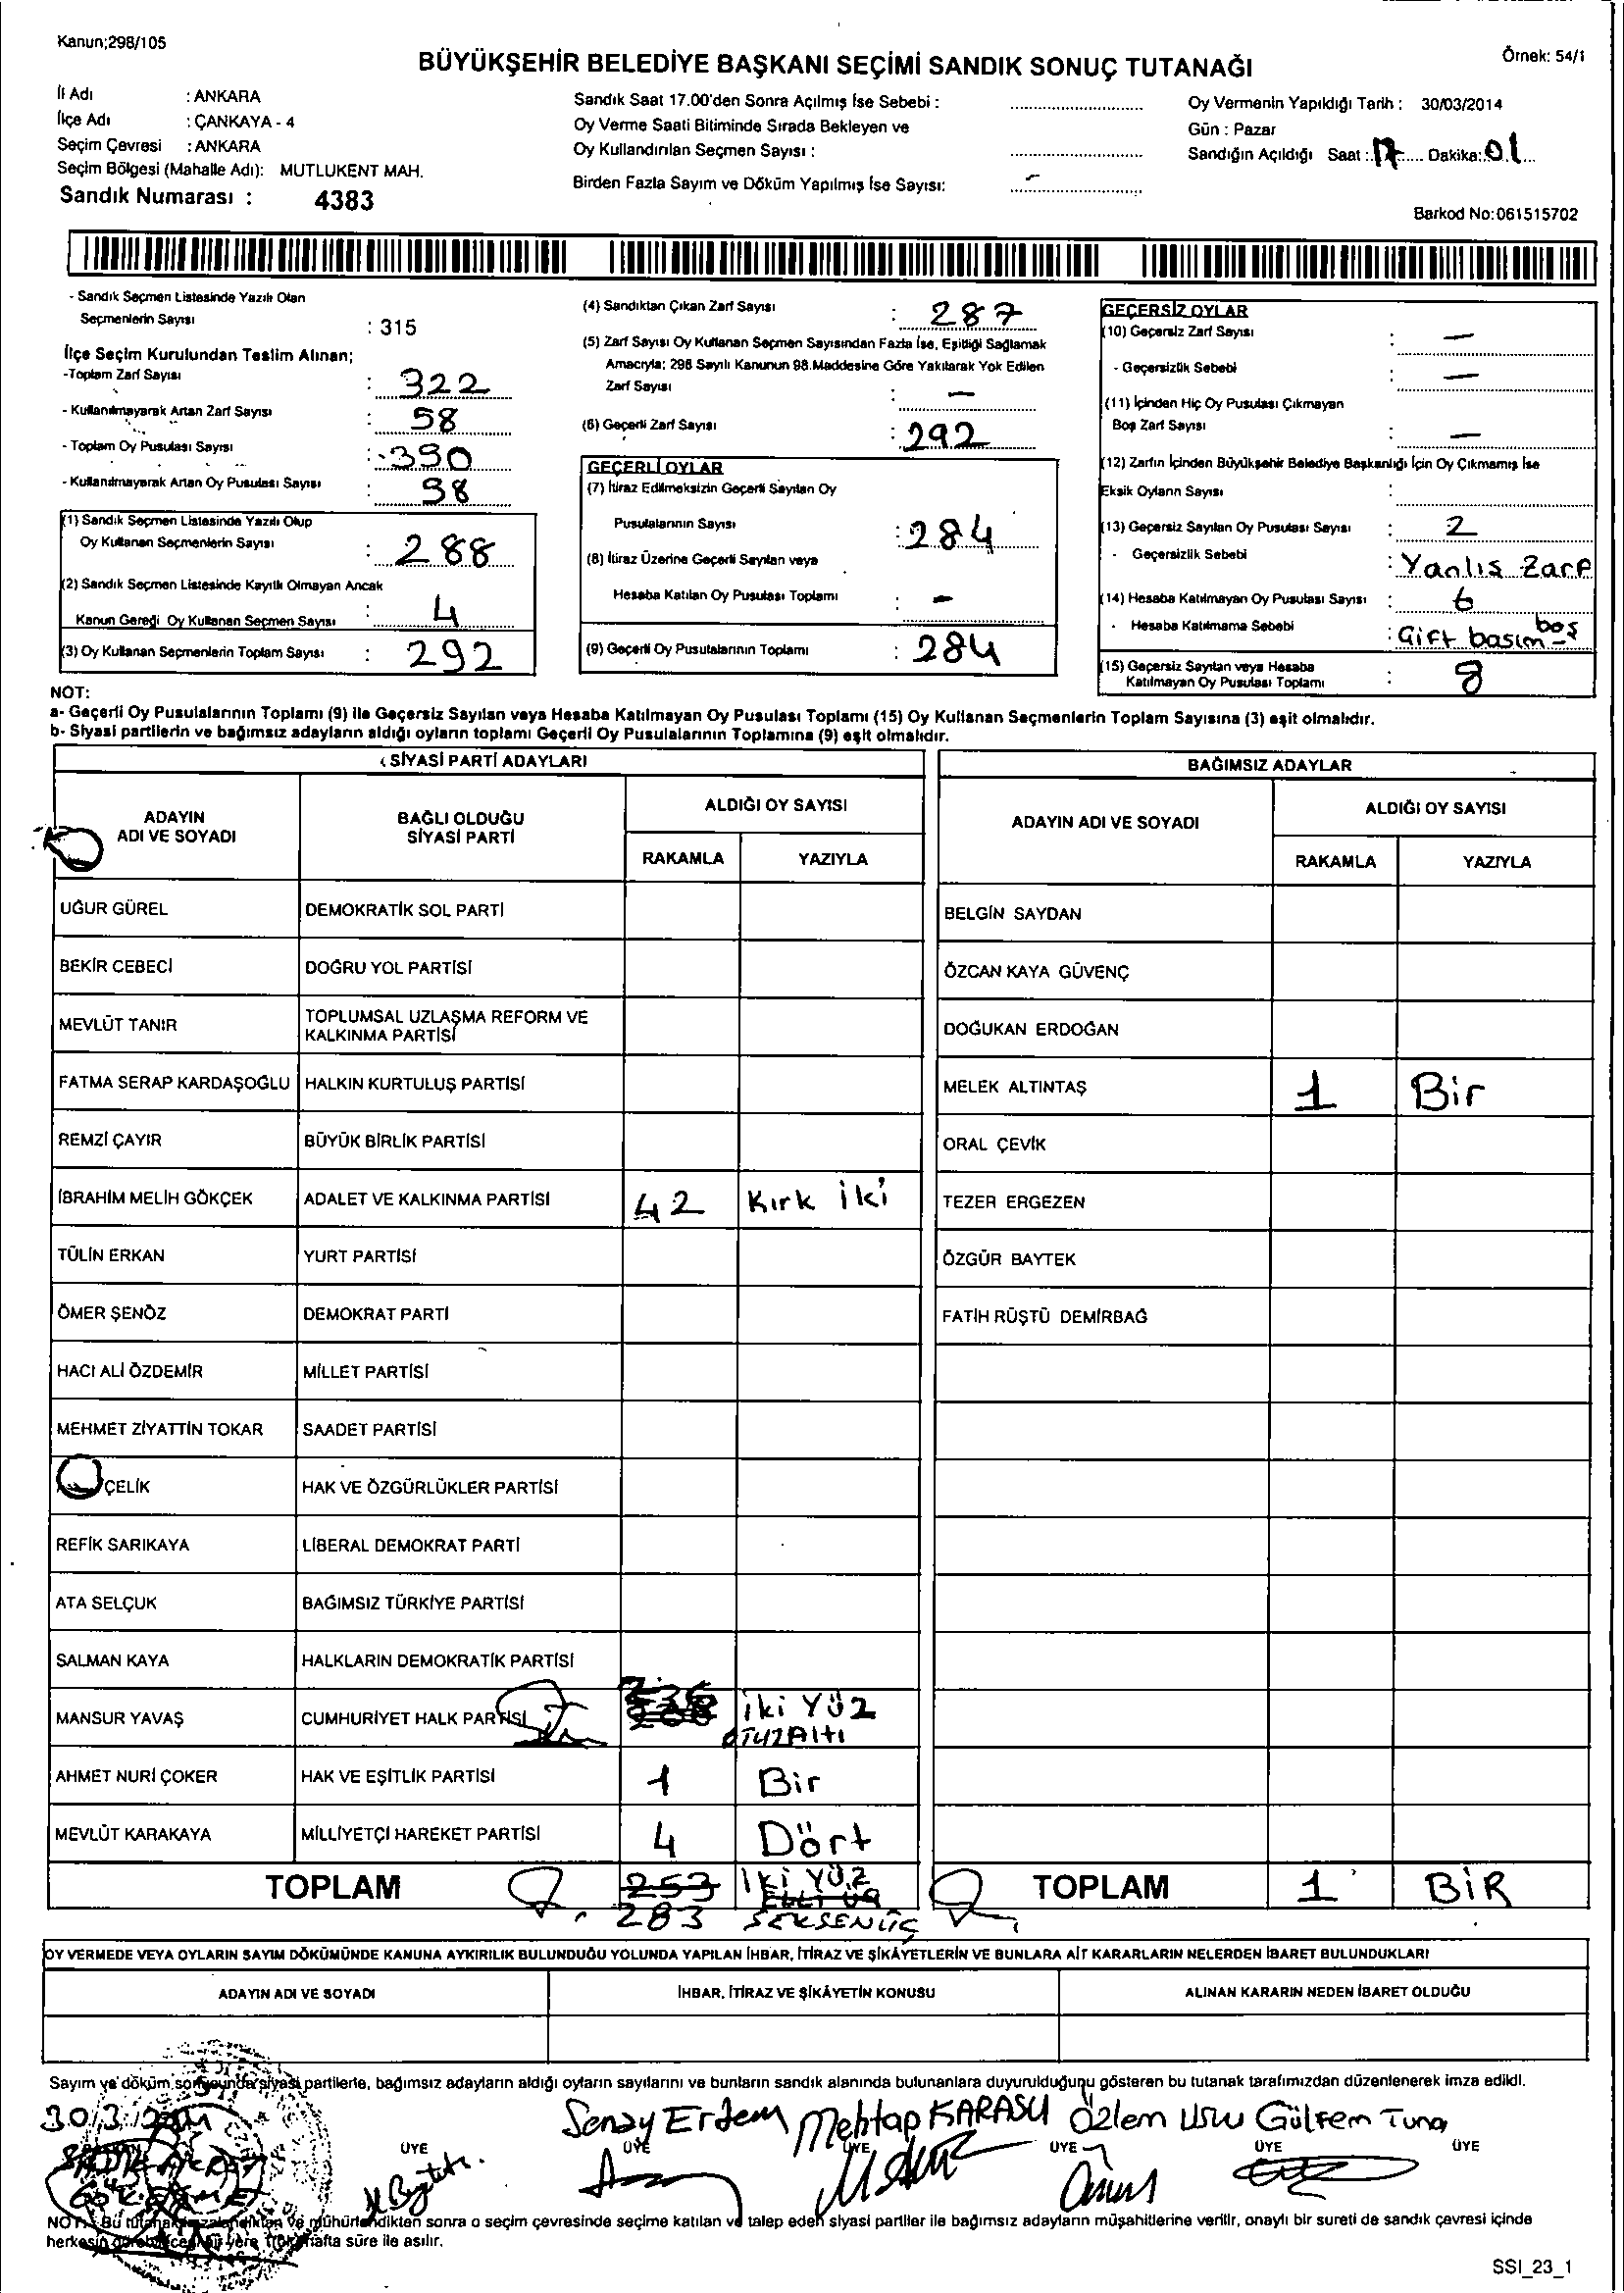 Kanun;298/105
BÜYÜKŞEHİR BELEDİYE BAŞKANI SEÇİMİ SANDIK SONUÇ TUTANAĞI
Örnek: 54/1
İl Adı : ANKARA
İlçe Adı : ÇANKAYA - 4
Seçim Çevresi : ANKARA
Seçim Bölgesi (Mahalle Adı): MUTLUKENT MAH.
Sandık Numarası : 4383
Sandık Saat 17.00'den Sonra Açılmış İse Sebebi :
Oy Verme Saati Bitiminde Sırada Bekleyen ve
Oy Kullandırılan Seçmen Sayısı :
Birden Fazla Sayım ve Döküm Yapılmış İse Sayısı: –
Oy Vermenin Yapıldığı Tarih : 30/03/2014
Gün : Pazar
Sandığın Açıldığı Saat : 17 Dakika: 01
Barkod No:061515702
- Sandık Seçmen Listesinde Yazılı Olan
Seçmenlerin Sayısı : 315
İlçe Seçim Kurulundan Teslim Alınan;
-Toplam Zarf Sayısı : 322
- Kullanılmayarak Artan Zarf Sayısı : 58
- Toplam Oy Pusulası Sayısı :
- Kullanılmayarak Artan Oy Pusulası Sayısı :
(1) Sandık Seçmen Listesinde Yazılı Olup
Oy Kullanan Seçmenlerin Sayısı : 288
(2) Sandık Seçmen Listesinde Kayıtlı Olmayan Ancak
Kanun Gereği Oy Kullanan Seçmen Sayısı : 4
(3) Oy Kullanan Seçmenlerin Toplam Sayısı : 292
(4) Sandıktan Çıkan Zarf Sayısı : 287
(5) Zarf Sayısı Oy Kullanan Seçmen Sayısından Fazla İse, Eşitliği Sağlamak
Amacıyla; 298 Sayılı Kanunun 98.Maddesine Göre Yakılarak Yok Edilen
Zarf Sayısı : –
(6) Geçerli Zarf Sayısı : 292
GEÇERLİ OYLAR
(7) İtiraz Edilmeksizin Geçerli Sayılan Oy
Pusulalarının Sayısı : 284
(8) İtiraz Üzerine Geçerli Sayılan veya
Hesaba Katılan Oy Pusulası Toplamı : –
(9) Geçerli Oy Pusulalarının Toplamı : 284
GEÇERSİZ OYLAR
(10) Geçersiz Zarf Sayısı : –
- Geçersizlik Sebebi : –
(11) İçinden Hiç Oy Pusulası Çıkmayan
Boş Zarf Sayısı : –
(12) Zarfın İçinden Büyükşehir Belediye Başkanlığı İçin Oy Çıkmamış İse
Eksik Oyların Sayısı :
(13) Geçersiz Sayılan Oy Pusulası Sayısı : 2
- Geçersizlik Sebebi : Yanlış Zarf
(14) Hesaba Katılmayan Oy Pusulası Sayısı : 6
- Hesaba Katılmama Sebebi : Çift basım - boş
(15) Geçersiz Sayılan veya Hesaba
Katılmayan Oy Pusulası Toplamı : 8
NOT:
a- Geçerli Oy Pusulalarının Toplamı (9) ile Geçersiz Sayılan veya Hesaba Katılmayan Oy Pusulası Toplamı (15) Oy Kullanan Seçmenlerin Toplam Sayısına (3) eşit olmalıdır.
b- Siyasi partilerin ve bağımsız adayların aldığı oyların toplamı Geçerli Oy Pusulalarının Toplamına (9) eşit olmalıdır.
SİYASİ PARTİ ADAYLARI
ADAYIN ADI VE SOYADI
BAĞLI OLDUĞU SİYASİ PARTİ
ALDIĞI OY SAYISI
RAKAMLA YAZIYLA
UĞUR GÜREL DEMOKRATİK SOL PARTİ
BEKİR CEBECİ DOĞRU YOL PARTİSİ
MEVLÜT TANIR TOPLUMSAL UZLAŞMA REFORM VE
KALKINMA PARTİSİ
FATMA SERAP KARDAŞOĞLU HALKIN KURTULUŞ PARTİSİ
REMZİ ÇAYIR BÜYÜK BİRLİK PARTİSİ
İBRAHİM MELİH GÖKÇEK ADALET VE KALKINMA PARTİSİ 42 Kırk iki
TÜLİN ERKAN YURT PARTİSİ
ÖMER ŞENÖZ DEMOKRAT PARTİ
HACI ALİ ÖZDEMİR MİLLET PARTİSİ
MEHMET ZİYATTİN TOKAR SAADET PARTİSİ
ÇELİK HAK VE ÖZGÜRLÜKLER PARTİSİ
REFİK SARIKAYA LİBERAL DEMOKRAT PARTİ
ATA SELÇUK BAĞIMSIZ TÜRKİYE PARTİSİ
SALMAN KAYA HALKLARIN DEMOKRATİK PARTİSİ
MANSUR YAVAŞ CUMHURİYET HALK PARTİSİ 236 iki Yüz
OTUZ Altı
AHMET NURİ ÇOKER HAK VE EŞİTLİK PARTİSİ 1 Bir
MEVLÜT KARAKAYA MİLLİYETÇİ HAREKET PARTİSİ 4 Dört
TOPLAM 253 İki YÜZ
ELLİ ÜÇ
283 SEKSENÜÇ
BAĞIMSIZ ADAYLAR
ADAYIN ADI VE SOYADI
ALDIĞI OY SAYISI
RAKAMLA YAZIYLA
BELGİN SAYDAN
ÖZCAN KAYA GÜVENÇ
DOĞUKAN ERDOĞAN
MELEK ALTINTAŞ 1 Bir
ORAL ÇEVİK
TEZER ERGEZEN
ÖZGÜR BAYTEK
FATİH RÜŞTÜ DEMİRBAĞ
TOPLAM 1 BİR
OY VERMEDE VEYA OYLARIN SAYIM DÖKÜMÜNDE KANUNA AYKIRILIK BULUNDUĞU YOLUNDA YAPILAN İHBAR, İTİRAZ VE ŞİKÂYETLERİN VE BUNLARA AİT KARARLARIN NELERDEN İBARET BULUNDUKLARI
ADAYIN ADI VE SOYADI
İHBAR, İTİRAZ VE ŞİKÂYETİN KONUSU
ALINAN KARARIN NEDEN İBARET OLDUĞU
Sayım ve döküm sonucunda siyasi partilerle, bağımsız adayların aldığı oyların sayılarını ve bunların sandık alanında bulunanlara duyurulduğunu gösteren bu tutanak tarafımızdan düzenlenerek imza edildi.
30/3/2014
Şenay Erdem Mehtap KARASU Özlem Gülfem Tuna
ÜYE ÜYE ÜYE ÜYE ÜYE ÜYE
NOT: Bu tutanak imzalandıktan ve mühürlendikten sonra o seçim çevresinde seçime katılan ve talep eden siyasi partiler ile bağımsız adayların müşahitlerine verilir, onaylı bir sureti de sandık çevresi içinde
herkesin görebileceği bir yere 1 (bir) hafta süre ile asılır.
SSI_23_1